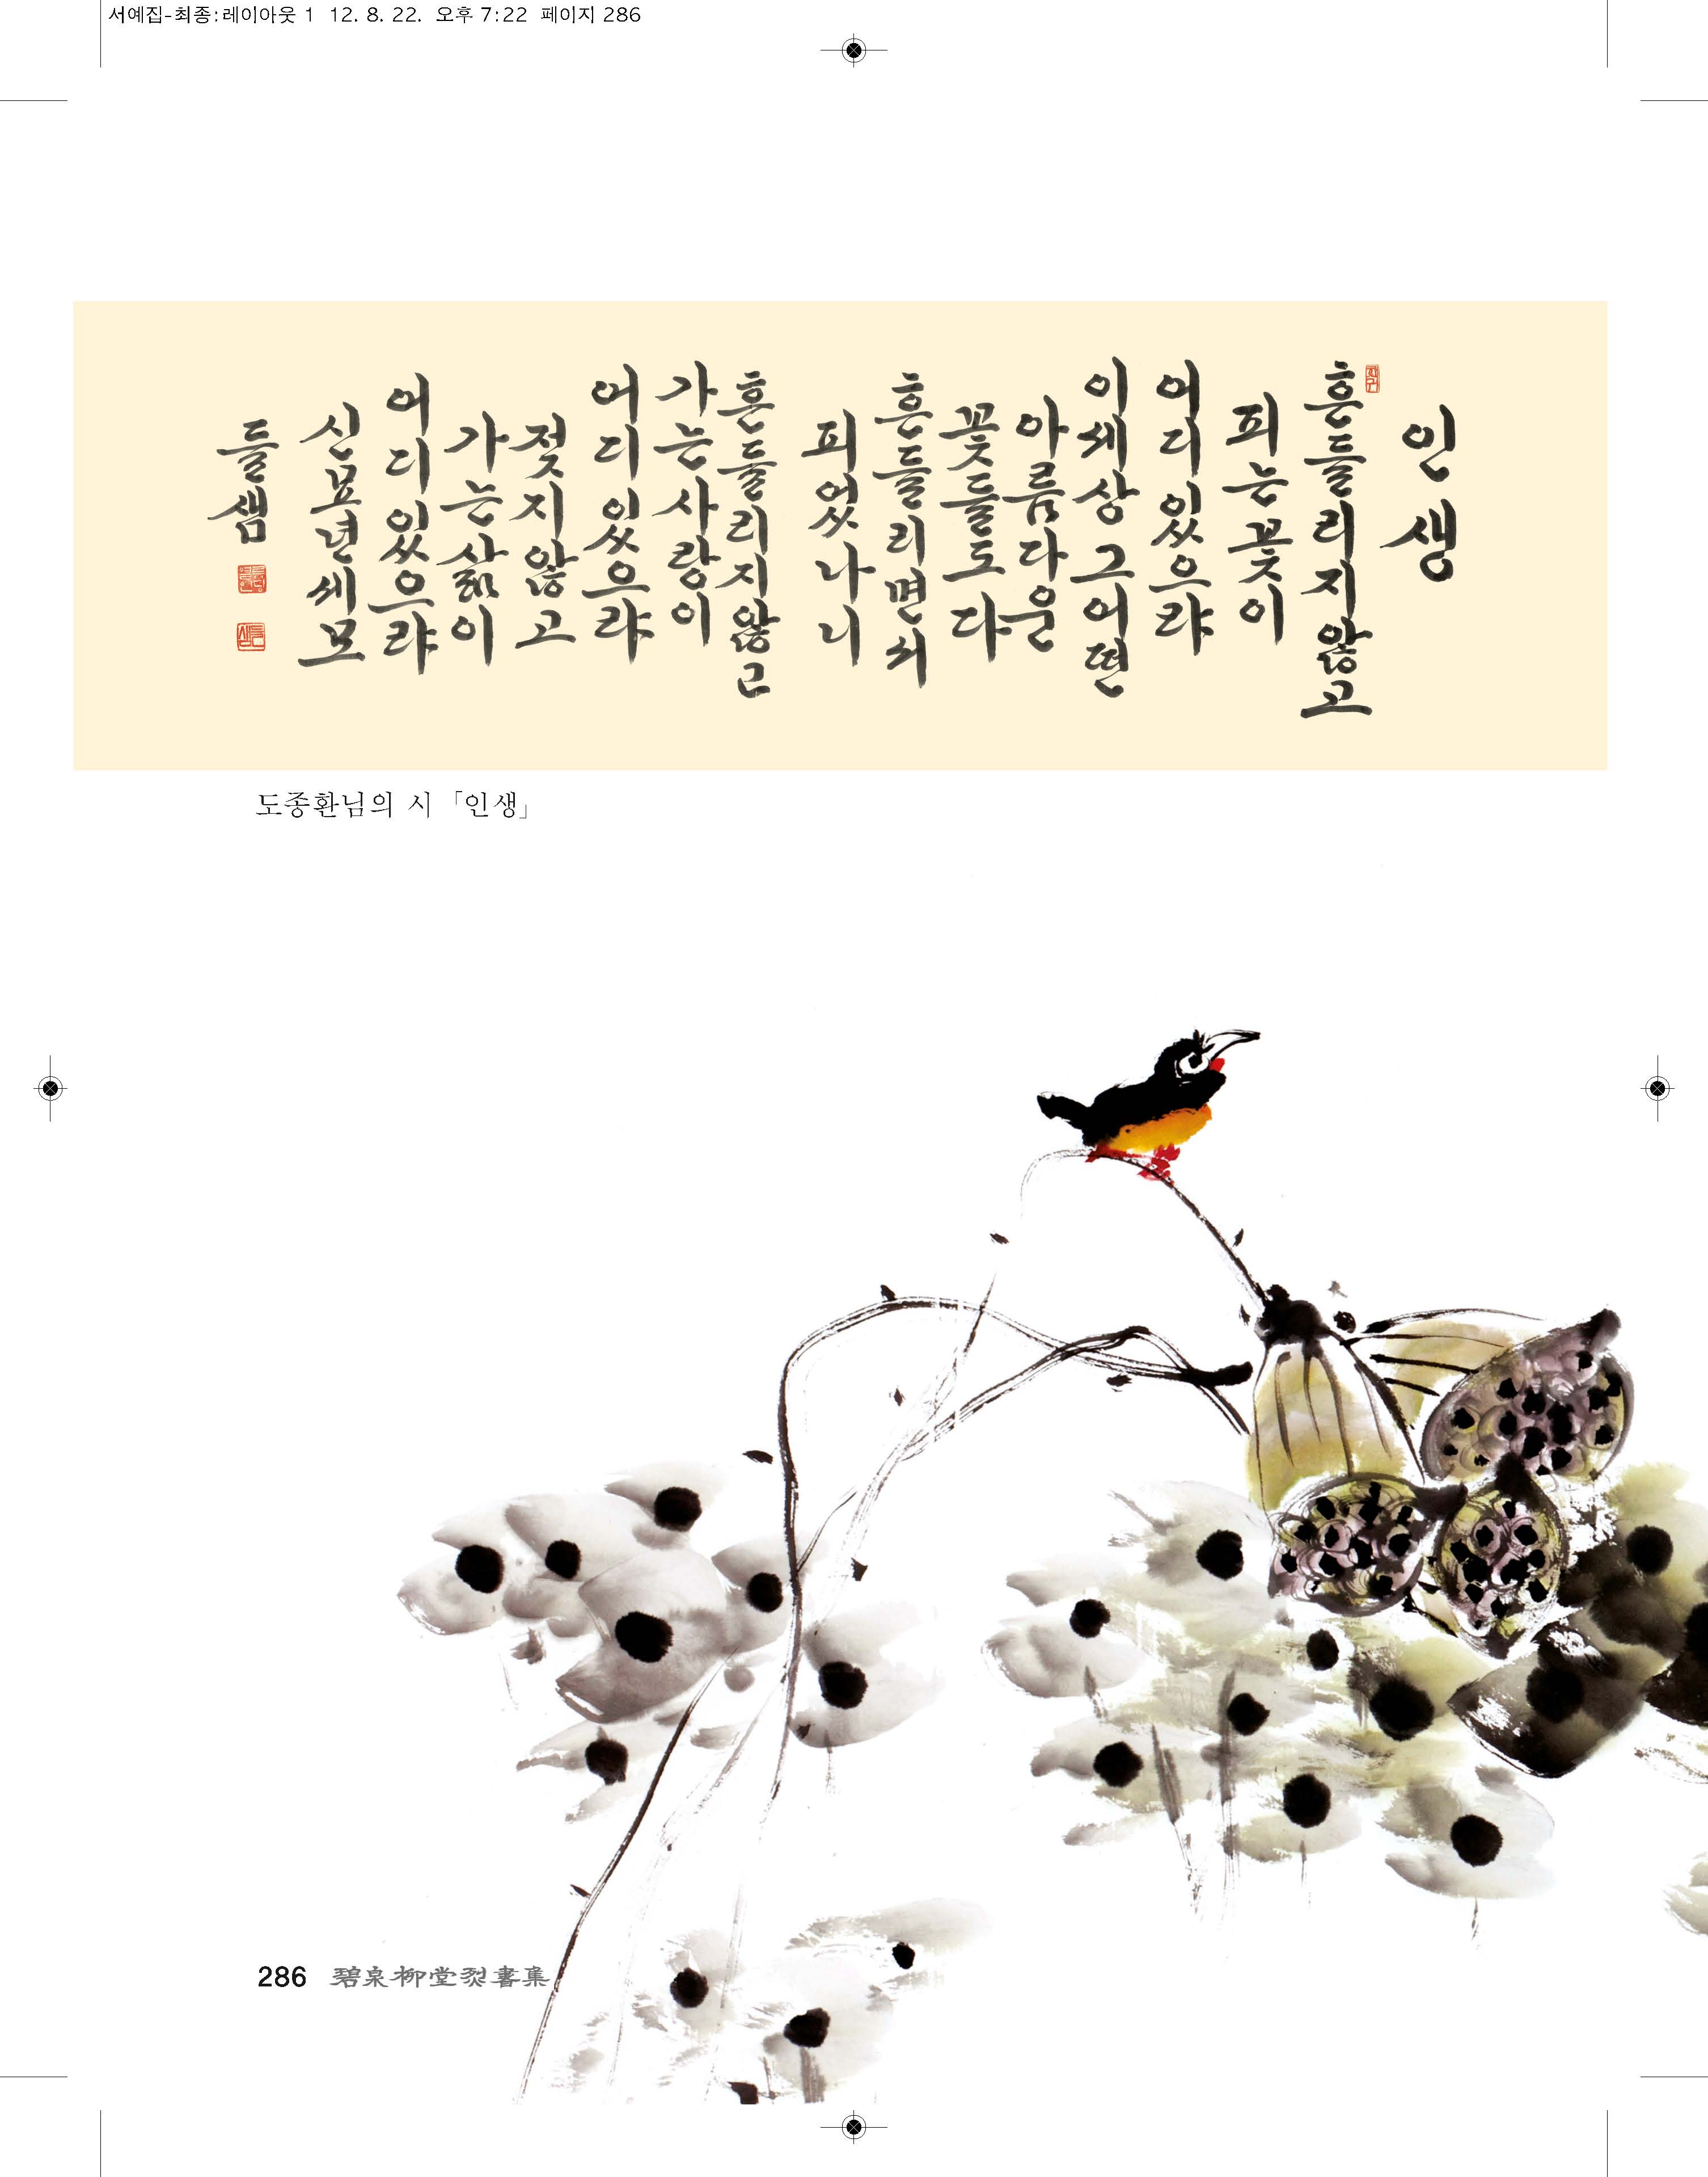 서예집-최종:레이아웃 1 12. 8. 22. 오후 7:22 페이지 286
인생
흔들리지않고
피는꽃이
어디있으랴
이세상그어떤
아름다운
꽃들도다
흔들리면서
피었나니
흔들리지않고
가는사랑이
어디있으랴
젖지않고
가는삶이
어디있으랴
신묘년세모
들샘
도종환님의 시 「인생」
286 碧泉柳堂烈書集